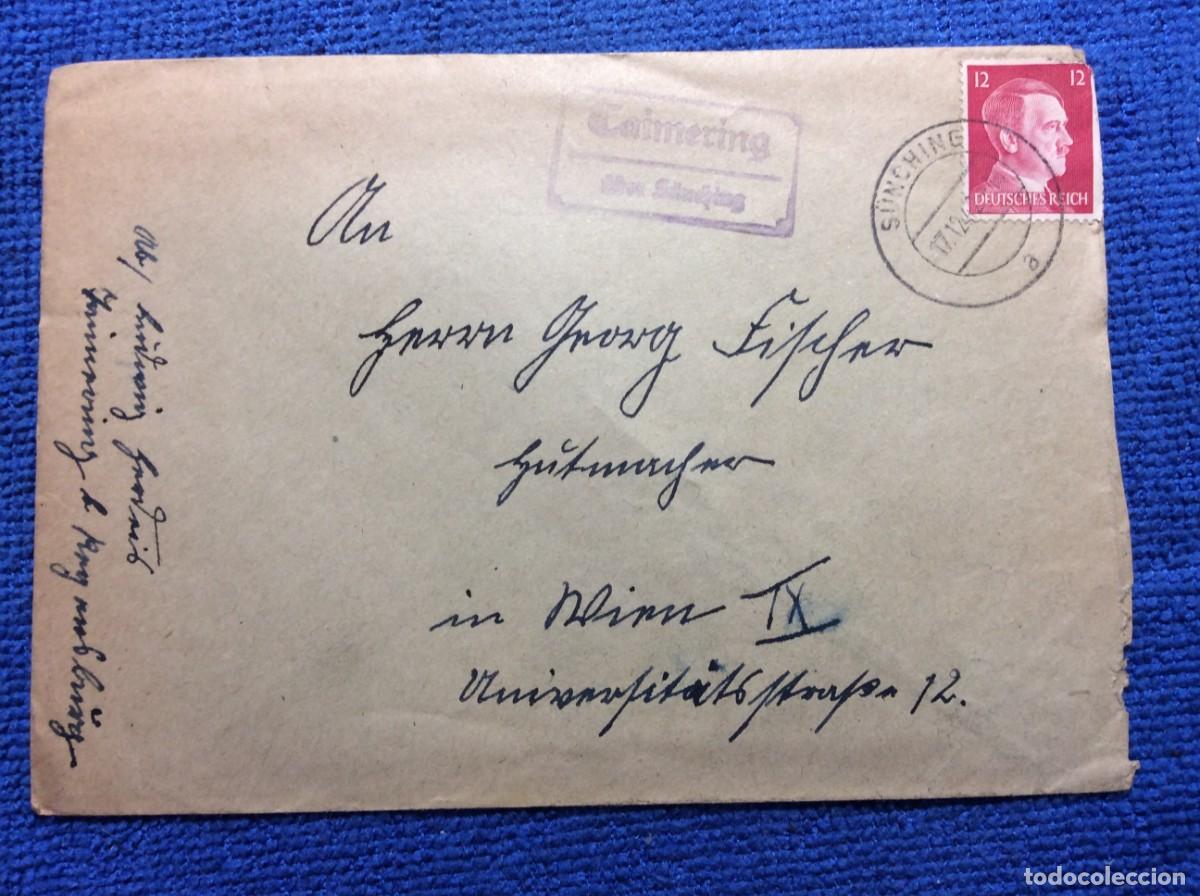 Taimering
über Sünching
12 12
DEUTSCHES REICH
SÜNCHING
17.12.4
a
An
Herrn Georg Fischer
Hutmacher
in Wien IX
Universitätsstraße 12.
Ab/ Ludwig
Taimering b Regensburg
todocoleccion